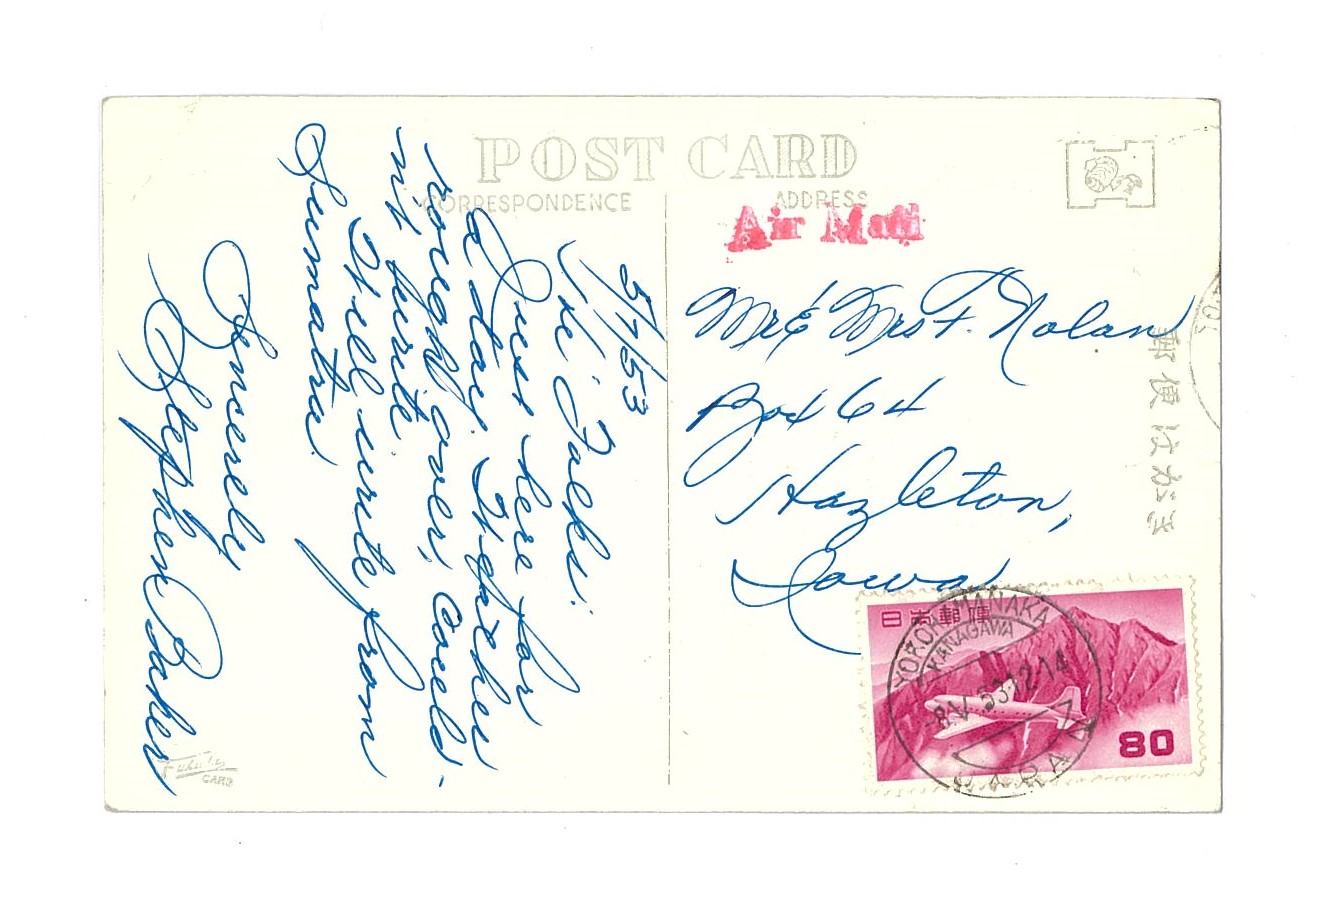 POST CARD
CORRESPONDENCE
ADDRESS
Air Mail
5/7/53
Hi Folks:
Just here for
a day. Weather
rough over, Could-
n't write.
Will write from
Sumatra.
Sincerely
Stephen Baker
Mr & Mrs F. Nolan
Box 64
Hazleton,
Iowa
郵便はがき
日本郵便
80
YOKOHAMANAKA
KANAGAWA
-8.V.53.12-14
JAPAN
CARD